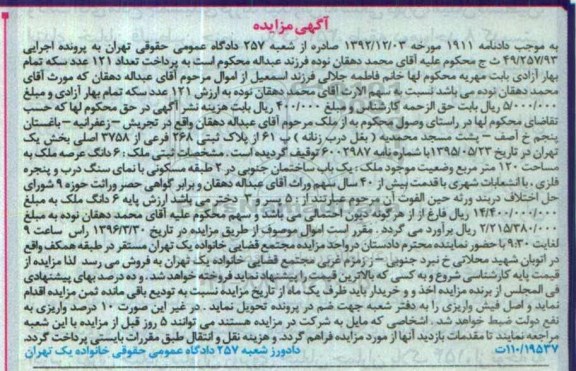 آگهی مزایده
به موجب دادنامه ۱۹۱۱ مورخه ۱۳۹۲/۱۲/۰۳ صادره از شعبه ۲۵۷ دادگاه عمومی حقوقی تهران به پرونده اجرایی
۴۹/۲۵۷/۹۳ ث ج محکوم علیه آقای محمد دهقان نوده فرزند عبداله محکوم است به پرداخت تعداد ۱۲۱ عدد سکه تمام
بهار آزادی بابت مهریه محکوم لها خانم فاطمه جلالی فرزند اسمعیل از اموال مرحوم آقای عبداله دهقان که مورث آقای
محمد دهقان نوده می باشد نسبت به سهم الارث آقای محمد دهقان نوده به ارزش ۱۲۱ عدد سکه تمام بهار آزادی و مبلغ
۵/۰۰۰/۰۰۰ ریال بابت حق الزحمه کارشناسی و مبلغ ۴۰۰/۰۰۰ ریال بابت هزینه نشر آگهی در حق محکوم لها که حسب
تقاضای محکوم لها در راستای وصول محکوم به از ملک مرحوم آقای عبداله دهقان واقع در تجریش – زعفرانیه – باغستان
پنجم خ آصف – پشت مسجد محمدیه ( بغل درب زنانه ) پ ۶۱ از پلاک ثبتی ۲۶۸ فرعی از ۳۷۵۸ اصلی بخش یک
تهران در تاریخ ۱۳۹۵/۰۵/۲۳ با شماره نامه ۶۰۰۲۹۸۷ توقیف گردیده است . مشخصات ثبتی ملک : ۶ دانگ عرصه ملک به
مساحت ۱۲۰ متر مربع وضعیت موجود ملک : یک باب ساختمان جنوبی در ۲ طبقه مسکونی با نمای سنگ درب و پنجره
فلزی . با انشعابات شهری با قدمت بیش از ۴۰ سال سهم وراث آقای عبداله دهقان و برابر گواهی حصر وراثت حوزه ۹ شورای
حل اختلاف دربند ورثه حین الفوت آن مرحوم عبارتند از : ۵ پسر و ۲ دختر می باشد ارزش پایه ۶ دانگ ملک به مبلغ
۱۴/۴۰۰/۰۰۰/۰۰۰ ریال فارغ از از هرگونه دیون احتمالی می باشد و سهم محکوم علیه آقای محمد دهقان نوده به مبلغ
۲/۲۱۵/۳۸۰/۰۰۰ ریال برآورد می گردد . مقرر است اموال موصوف از طریق مزایده در تاریخ ۱۳۹۶/۳/۳۰ راس ساعت ۹
لغایت ۹:۳۰ با حضور نماینده محترم دادستان در واحد مزایده مجتمع قضایی خانواده یک تهران مستقر در طبقه همکف واقع
در اتوبان شهید محلاتی خ نبرد جنوبی – خ زمزم غربی مجتمع قضایی خانواده یک تهران به فروش می رسد لذا مزایده از
قیمت پایه کارشناسی شروع و به کسی که بالاترین قیمت را پیشنهاد نماید فروخته خواهد شد . و ده درصد بهای پیشنهادی
فی المجلس از برنده مزایده اخذ و و خریدار باید ظرف یک ماه از تاریخ مزایده نسبت به تودیع باقی مانده ثمن مزایده اقدام
نماید و اصل فیش واریزی را به دفتر شعبه جهت ضم در پرونده تحویل نماید . در غیر این صورت ۱۰ درصد واریزی به
نفع دولت ضبط خواهد شد . اشخاصی که مایل به شرکت در مزایده هستند می توانند ۵ روز قبل از مزایده با این شعبه
مراجعه نمایند تا مقدمات بازدید آنها از مورد مزایده فراهم گردد. و هزینه نقل و انتقال طبق مقررات بایستی پرداخت گردد.
۱۱۰/۱۹۵۳۷ت دادورز شعبه ۲۵۷ دادگاه عمومی حقوقی خانواده یک تهران